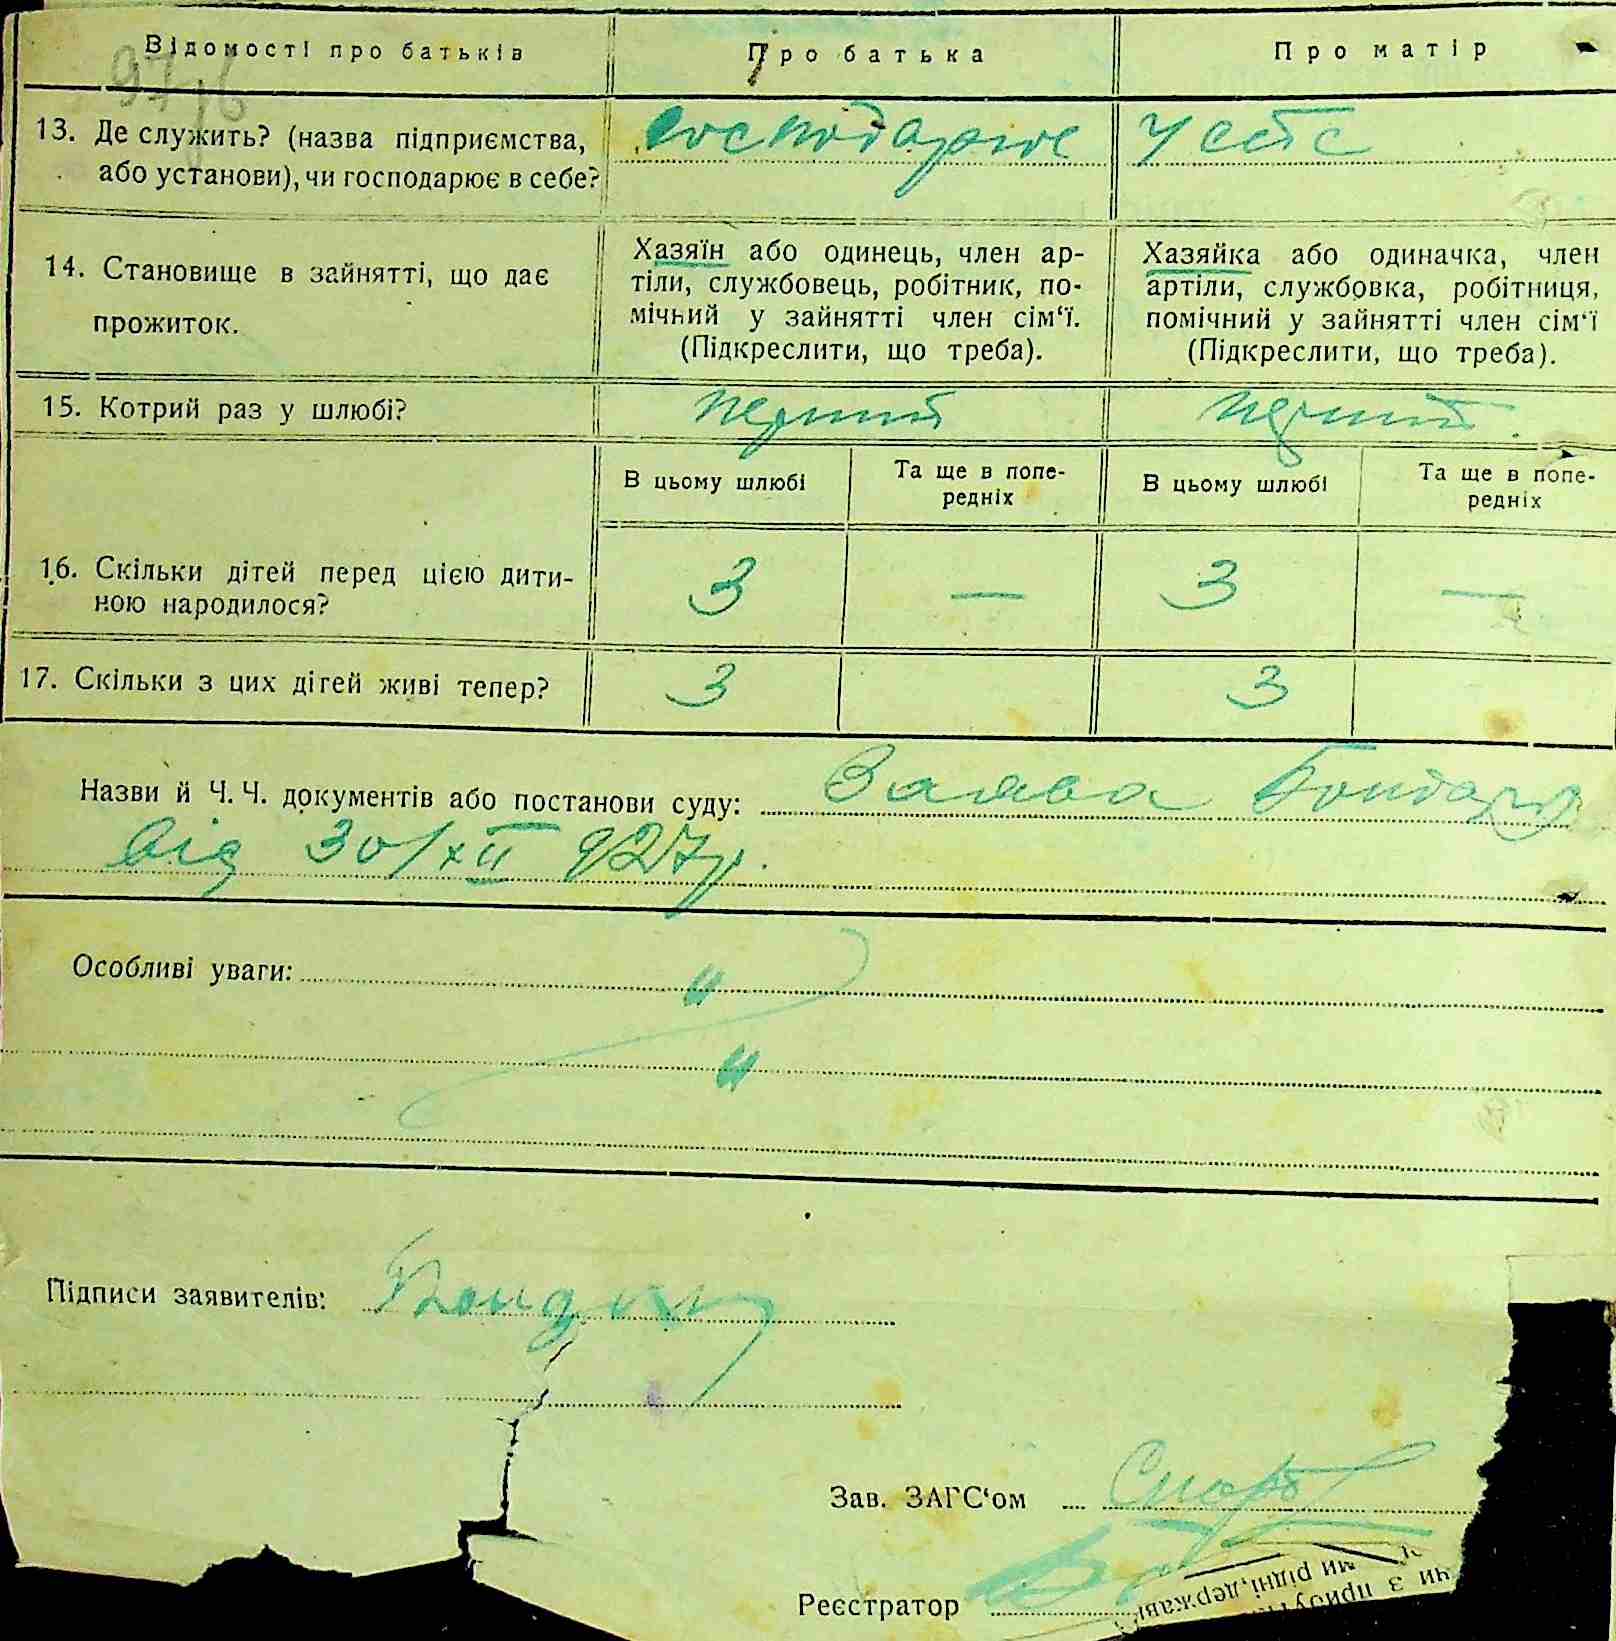 Відомості про батьків Про батька Про матір
97
13. Де служить? (назва підприємства, або установи), чи господарює в себе? господарює у себе
14. Становище в зайнятті, що дає прожиток.
Хазяїн або одинець, член ар-
тіли, службовець, робітник, по-
мічний у зайнятті член сім‘ї.
(Підкреслити, що треба).
Хазяйка або одиначка, член
артіли, службовка, робітниця,
помічний у зайнятті член сім‘ї
(Підкреслити, що треба).
15. Котрий раз у шлюбі? перший перший
В цьому шлюбі Та ще в попе-
редніх В цьому шлюбі Та ще в попе-
редніх
16. Скільки дітей перед цією дити-
ною народилося? 3 — 3 —
17. Скільки з цих дітей живі тепер? 3 3
Назви й Ч. Ч. документів або постанови суду: Заява Бондар
від 30/XII 927р.
Особливі уваги: "
"
Підписи заявителів: Бондар
Зав. ЗАГС‘ом
Реєстратор
ми рідні, держав
чи з